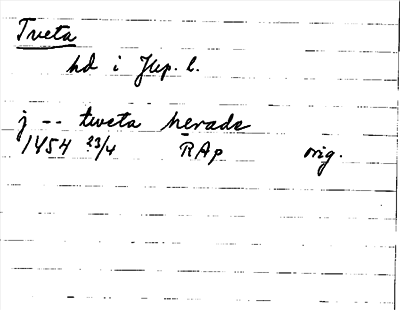 Tveta
hd i Jkp. l.
j -- tweta herade
1454 23/4 RAp orig.